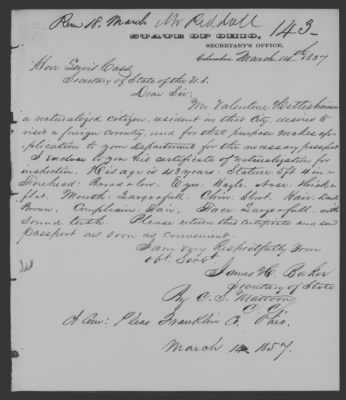 Rec 18. March Mr Riddall 143
STATE OF OHIO,
SECRETARY'S OFFICE,
Columbus, March 14th 1857
Hon Lewis Cass
Secretary of State of the U.S.
Dear Sir:
Mr Valentine
a naturalized citizen, resident in this City, desires to
visit a foreign country, and for that purpose makes ap-
plication to your Department for the necessary passport
I inclose to you his certificate of naturalization for
inspection. His age is 43 years: Stature: 5 ft 4 in -
Forehead: Broad & low. Eyes: Hazle. Nose: Thick &
flat. Mouth: Large & full. Chin: Short. Hair: Dark
Brown. Complexion: Fair. Face: Large & full, with
sound teeth. Please return this certificate and send
Passport as soon as convenient.
I am very Respectfully Your
obt Servt
James H. Baker
Secretary of State
By C. S.
C. C.
Franklin Co. Ohio.
March 14. 1857.